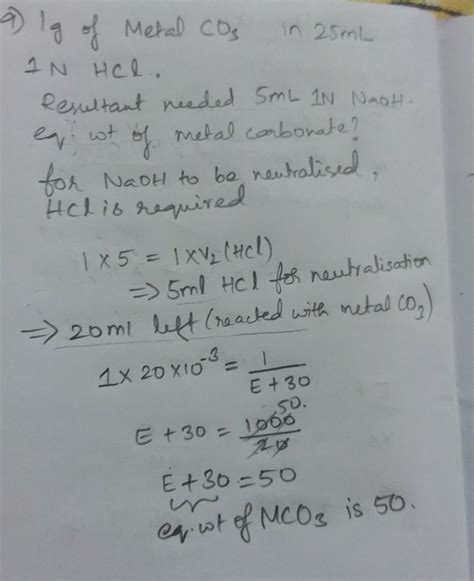 Q) 1g of Metal CO3 in 25mL
1N HCl.
Resultant needed 5mL 1N NaOH.
eq. wt of metal carbonate?
for NaOH to be neutralised,
HCl is required
1 × 5 = 1 × V2 (HCl)
⇒ 5ml HCl for neutralisation
⇒ 20ml left (reacted with metal CO3)
1 × 20 × 10^-3 = 1 / (E + 30)
E + 30 = 1000 / 20 50.
E + 30 = 50
eq. wt of MCO3 is 50.